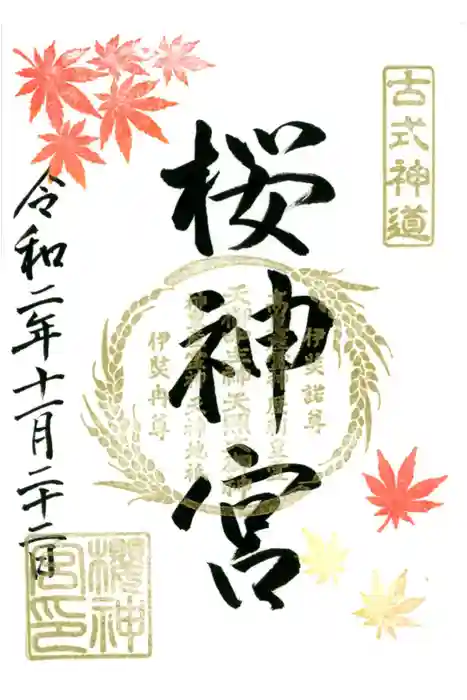 古式神道
桜神宮
伊奘諾尊
伊奘冉尊
令和二年十一月二十二日
櫻神
宮印